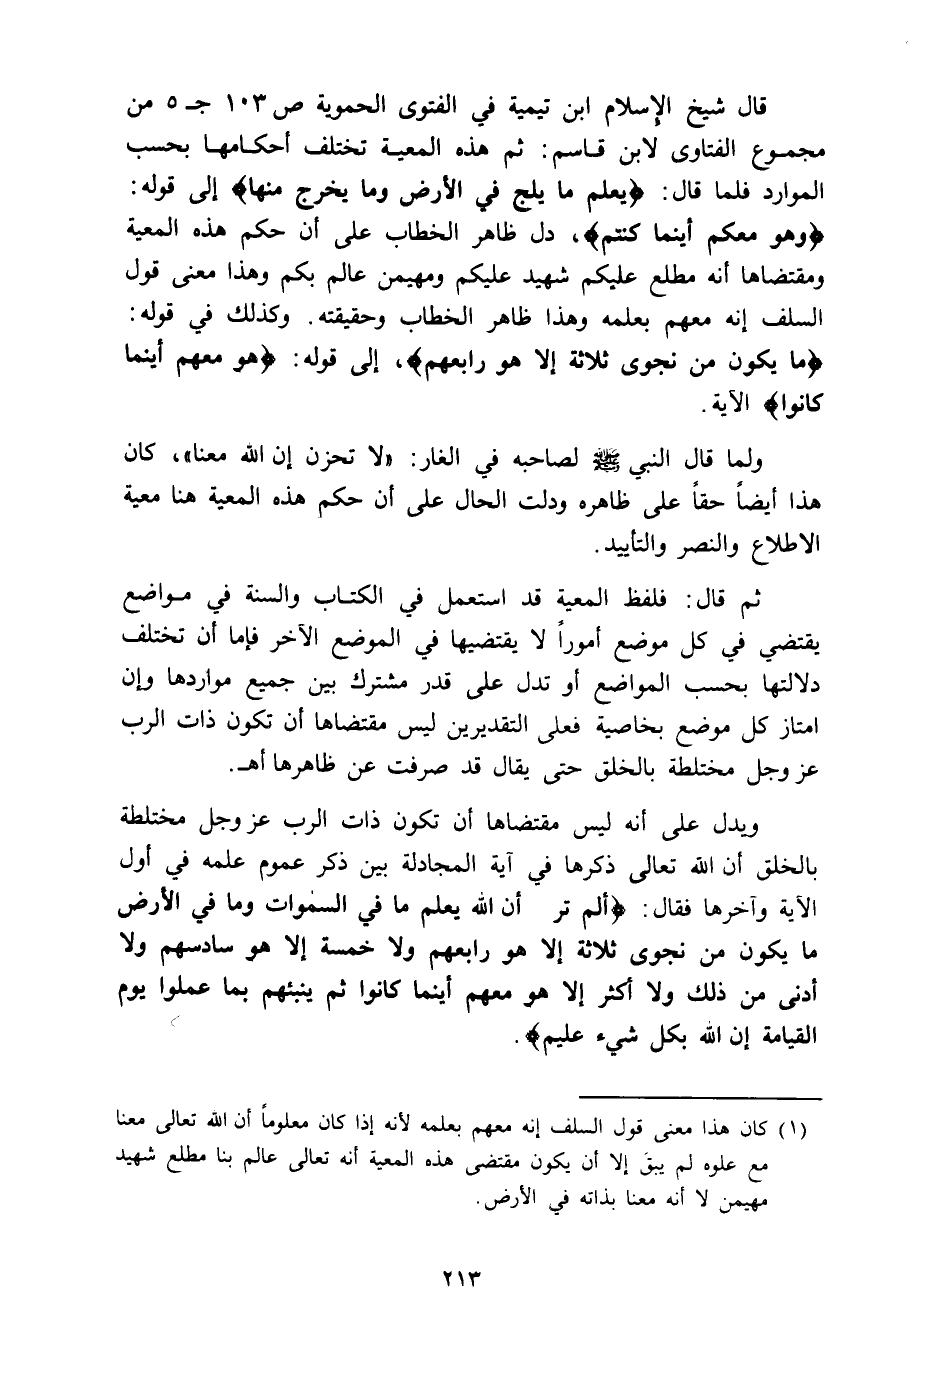 قال شيخ الإسلام ابن تيمية في الفتوى الحموية ص ١٠٣ جـ ٥ من
مجموع الفتاوى لابن قاسم: ثم هذه المعية تختلف أحكامها بحسب
الموارد فلما قال: ﴿يعلم ما يلج في الأرض وما يخرج منها﴾ إلى قوله:
﴿وهو معكم أينما كنتم﴾، دل ظاهر الخطاب على أن حكم هذه المعية
ومقتضاها أنه مطلع عليكم شهيد عليكم ومهيمن عالم بكم وهذا معنى قول
السلف إنه معهم بعلمه وهذا ظاهر الخطاب وحقيقته. وكذلك في قوله:
﴿ما يكون من نجوى ثلاثة إلا هو رابعهم﴾، إلى قوله: ﴿هو معهم أينما
كانوا﴾ الآية.
ولما قال النبي ﷺ لصاحبه في الغار: «لا تحزن إن الله معنا»، كان
هذا أيضاً حقاً على ظاهره ودلت الحال على أن حكم هذه المعية هنا معية
الاطلاع والنصر والتأييد.
ثم قال: فلفظ المعية قد استعمل في الكتاب والسنة في مواضع
يقتضي في كل موضع أموراً لا يقتضيها في الموضع الآخر فإما أن تختلف
دلالتها بحسب المواضع أو تدل على قدر مشترك بين جميع مواردها وإن
امتاز كل موضع بخاصية فعلى التقديرين ليس مقتضاها أن تكون ذات الرب
عز وجل مختلطة بالخلق حتى يقال قد صرفت عن ظاهرها أهـ.
ويدل على أنه ليس مقتضاها أن تكون ذات الرب عز وجل مختلطة
بالخلق أن الله تعالى ذكرها في آية المجادلة بين ذكر عموم علمه في أول
الآية وآخرها فقال: ﴿ألم تر أن الله يعلم ما في السمٰوات وما في الأرض
ما يكون من نجوى ثلاثة إلا هو رابعهم ولا خمسة إلا هو سادسهم ولا
أدنى من ذلك ولا أكثر إلا هو معهم أينما كانوا ثم ينبئهم بما عملوا يوم
القيامة إن الله بكل شيء عليم﴾.
(١) كان هذا معنى قول السلف إنه معهم بعلمه لأنه إذا كان معلوماً أن الله تعالى معنا
مع علوه لم يبقَ إلا أن يكون مقتضى هذه المعية أنه تعالى عالم بنا مطلع شهيد
مهيمن لا أنه معنا بذاته في الأرض.
٢١٣